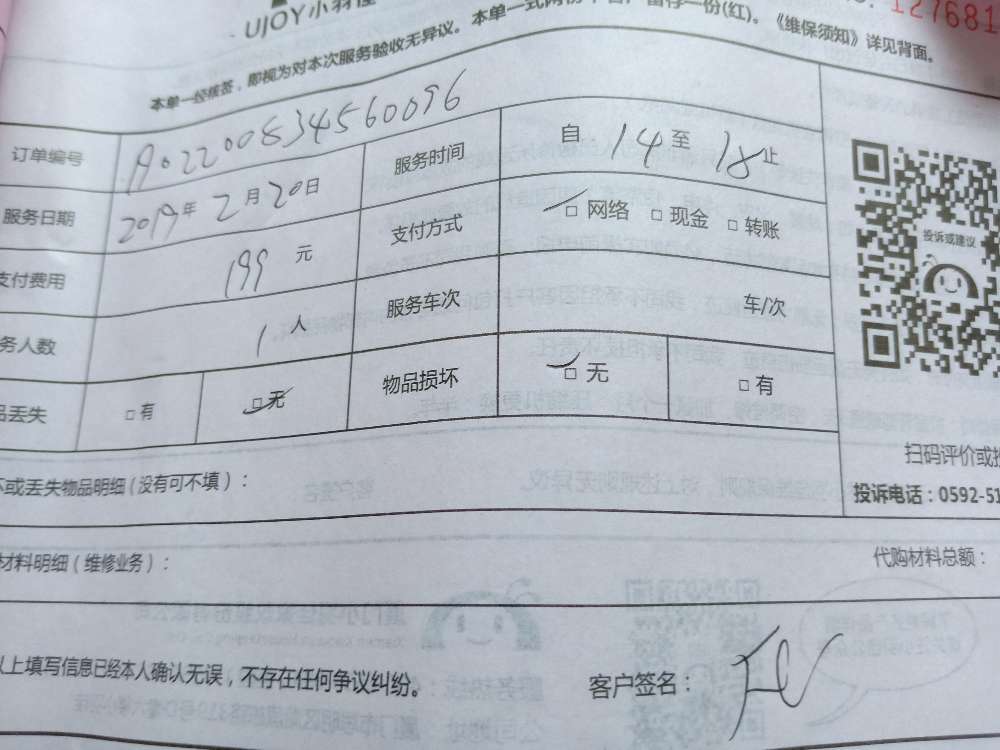 UJOY小羽佳
127681
本单一经核签，即视为对本次服务验收无异议。本单一式两份，客户留存一份(红)。《维保须知》详见背面。
订单编号 A022008534560096 服务时间 自 14 至 18 止
服务日期 2019年 2月 20日 支付方式 □ 网络 □ 现金 □ 转账
支付费用 199 元 服务车次 车/次
务人数 1 人
品丢失 □ 有 □ 无 物品损坏 □ 无 □ 有
投诉或建议
扫码评价或投
投诉电话：0592-51
坏或丢失物品明细（没有可不填）：
材料明细（维修业务）： 代购材料总额：
以上填写信息已经本人确认无误，不存在任何争议纠纷。 客户签名：